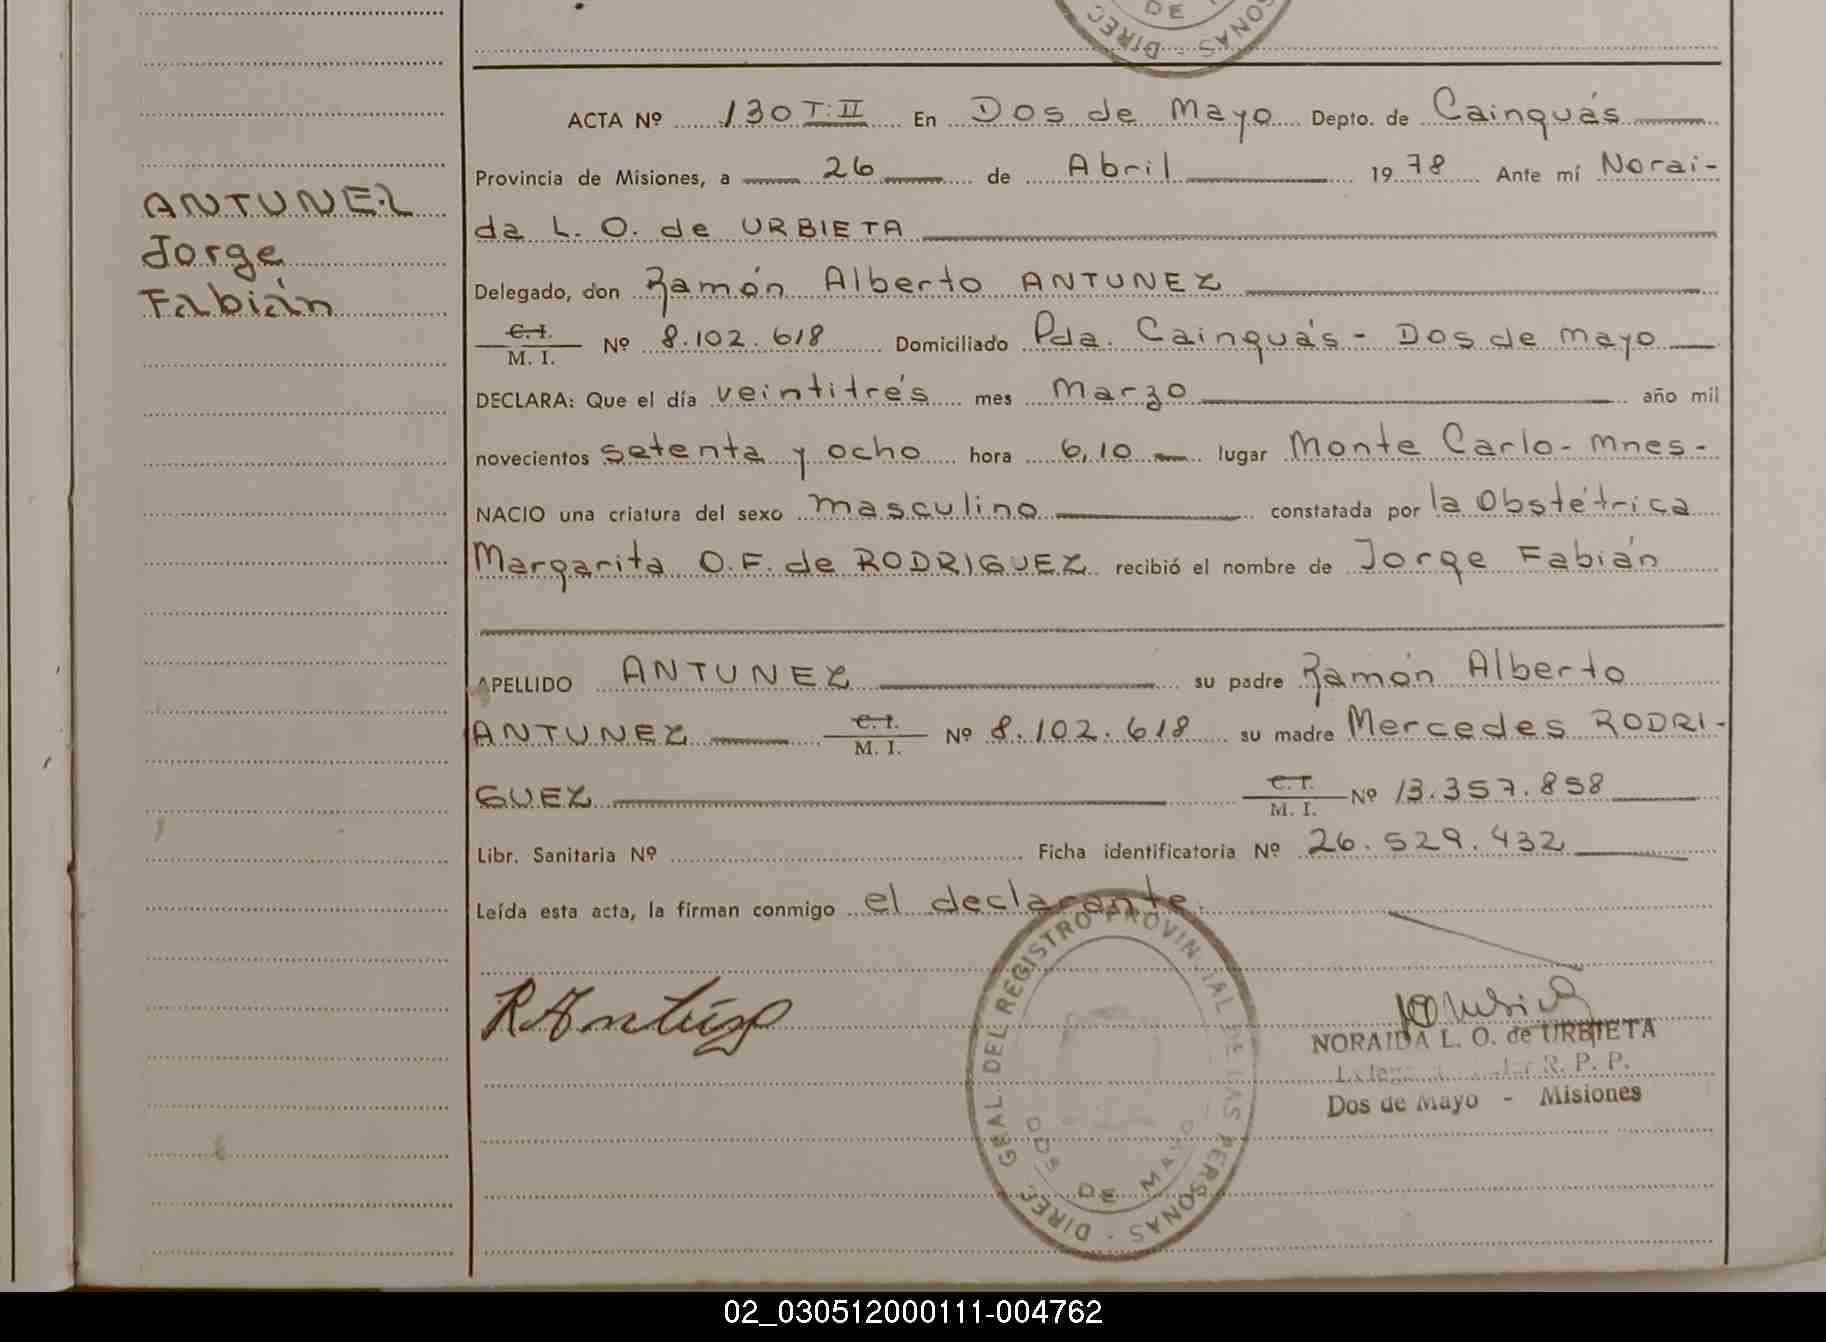 DE
DIREC
SONAS
ACTA Nº 130 T: II En Dos de Mayo Depto. de Cainquás
Provincia de Misiones, a 26 de Abril 19 78 Ante mí Norai-
da L. O. de URBIETA
ANTUNEZ
Jorge
Fabián
Delegado, don Ramón Alberto ANTUNEZ
C. I.
M. I. Nº 8.102.618 Domiciliado Pda. Cainquás - Dos de Mayo
DECLARA: Que el día veintitrés mes Marzo año mil
novecientos setenta y ocho hora 6,10 lugar Monte Carlo - Mnes -
NACIO una criatura del sexo masculino constatada por la Obstétrica
Margarita O. F. de RODRIGUEZ recibió el nombre de Jorge Fabián
APELLIDO ANTUNEZ su padre Ramón Alberto
ANTUNEZ C. I. M. I. Nº 8.102.618 su madre Mercedes RODRI-
GUEZ C. I. M. I. Nº 13.357.858
Libr. Sanitaria Nº Ficha identificatoria Nº 26.529.432
Leída esta acta, la firman conmigo el declarante.
DIREC. GRAL. DEL REGISTRO PROVINCIAL DE LAS PERSONAS
DOS DE MAYO
NORAIDA L. O. de URBIETA
R. P. P.
Dos de Mayo - Misiones
02_030512000111-004762